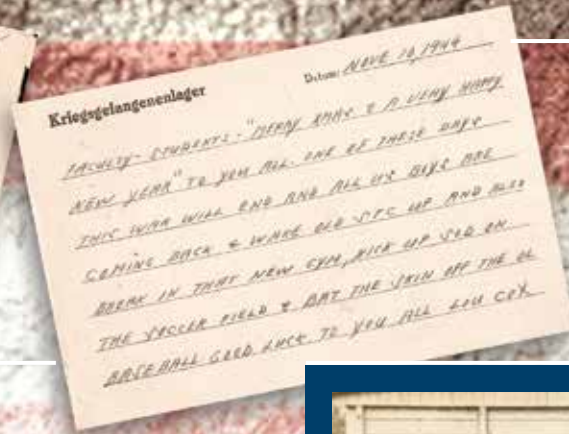 Kriegsgefangenenlager
Datum: NOVE 10, 1944
FACULTY - STUDENTS - "MERRY XMAS & A VERY HAPPY
NEW YEAR" TO YOU ALL. ONE OF THESE DAYS
THIS WAR WILL END AND ALL US BOYS ARE
COMING BACK & WAKE OLD STC UP AND ALSO
BREAK IN THAT NEW GYM, KICK UP SOD ON
THE SOCCER FIELD & BAT THE SKIN OFF THE OL
BASEBALL GOOD LUCK TO YOU ALL LOU COX